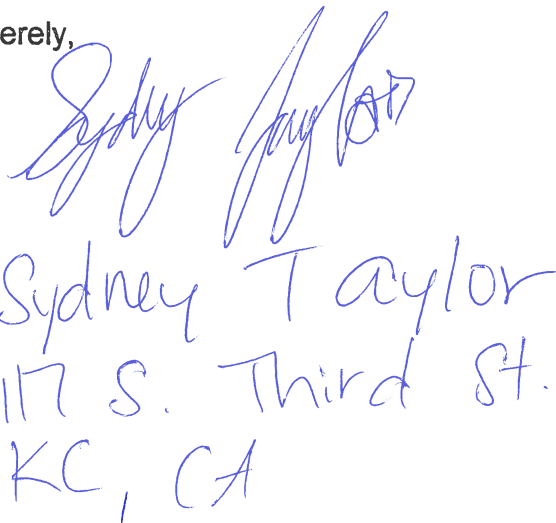 erely,
Sydney Taylor
Sydney Taylor
117 S. Third St.
KC, CA